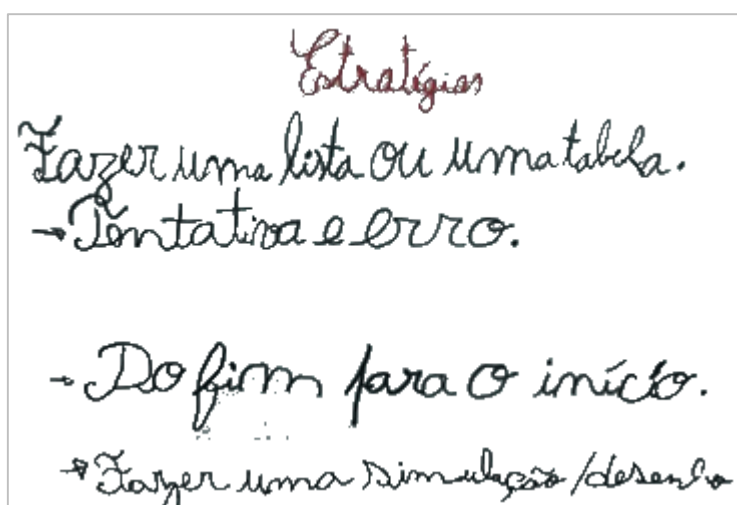 Estratégias
Fazer uma lista ou uma tabela.
→ Tentativa e erro.
→ Do fim para o início.
→ Fazer uma simulação/desenho